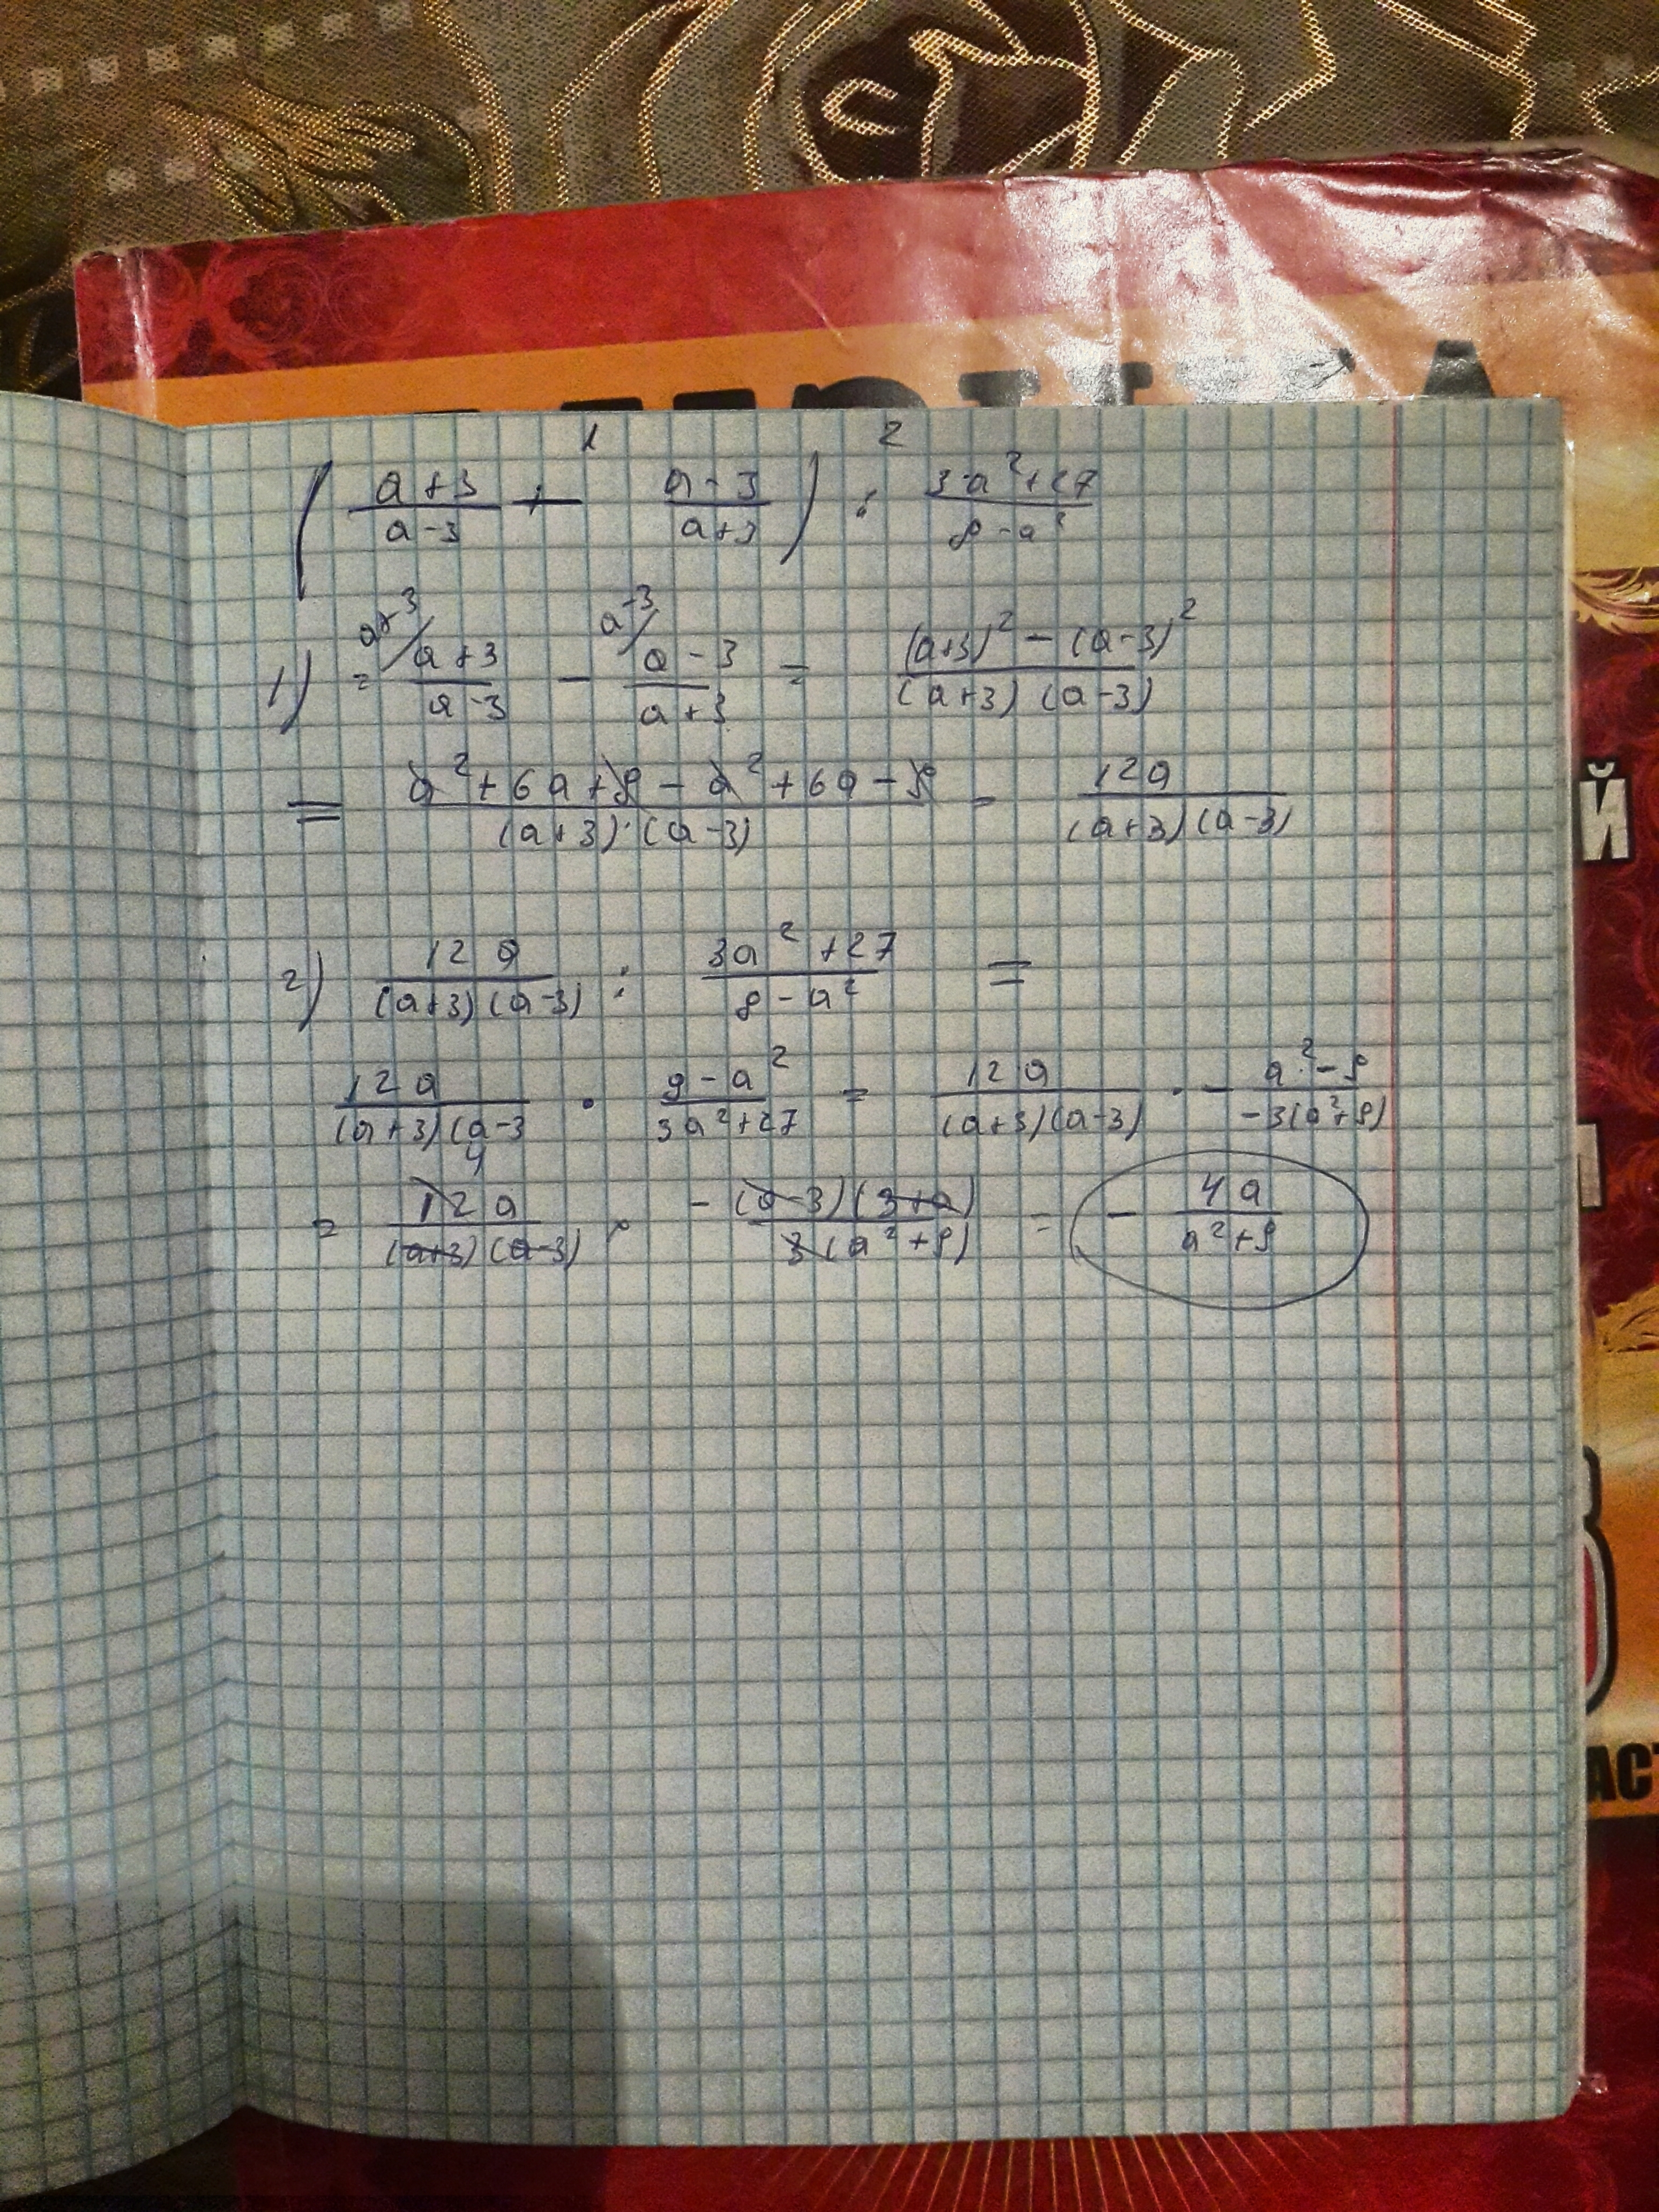 1 2
( (a+3)/(a-3) + (a-3)/(a+3) ) : (3a²+27)/(9-a²)
1) = a+3/ (a+3)/(a-3) - a-3/ (a-3)/(a+3) = ((a+3)² - (a-3)²)/((a+3)(a-3))
= (a²+6a+9-a²+6a-9)/((a+3)·(a-3)) = 12a/((a+3)(a-3))
2) 12a/((a+3)(a-3)) : (3a²+27)/(9-a²) =
12a/((a+3)(a-3 · (9-a²)/(3a²+27) = 12a/((a+3)(a-3)) · - (a²-9)/(-3(a²+9))
4
= 12a/((a+3)(a-3)) · - ((a-3)(3+a))/(3(a²+9)) = - 4a/(a²+9)
Й
АСТ